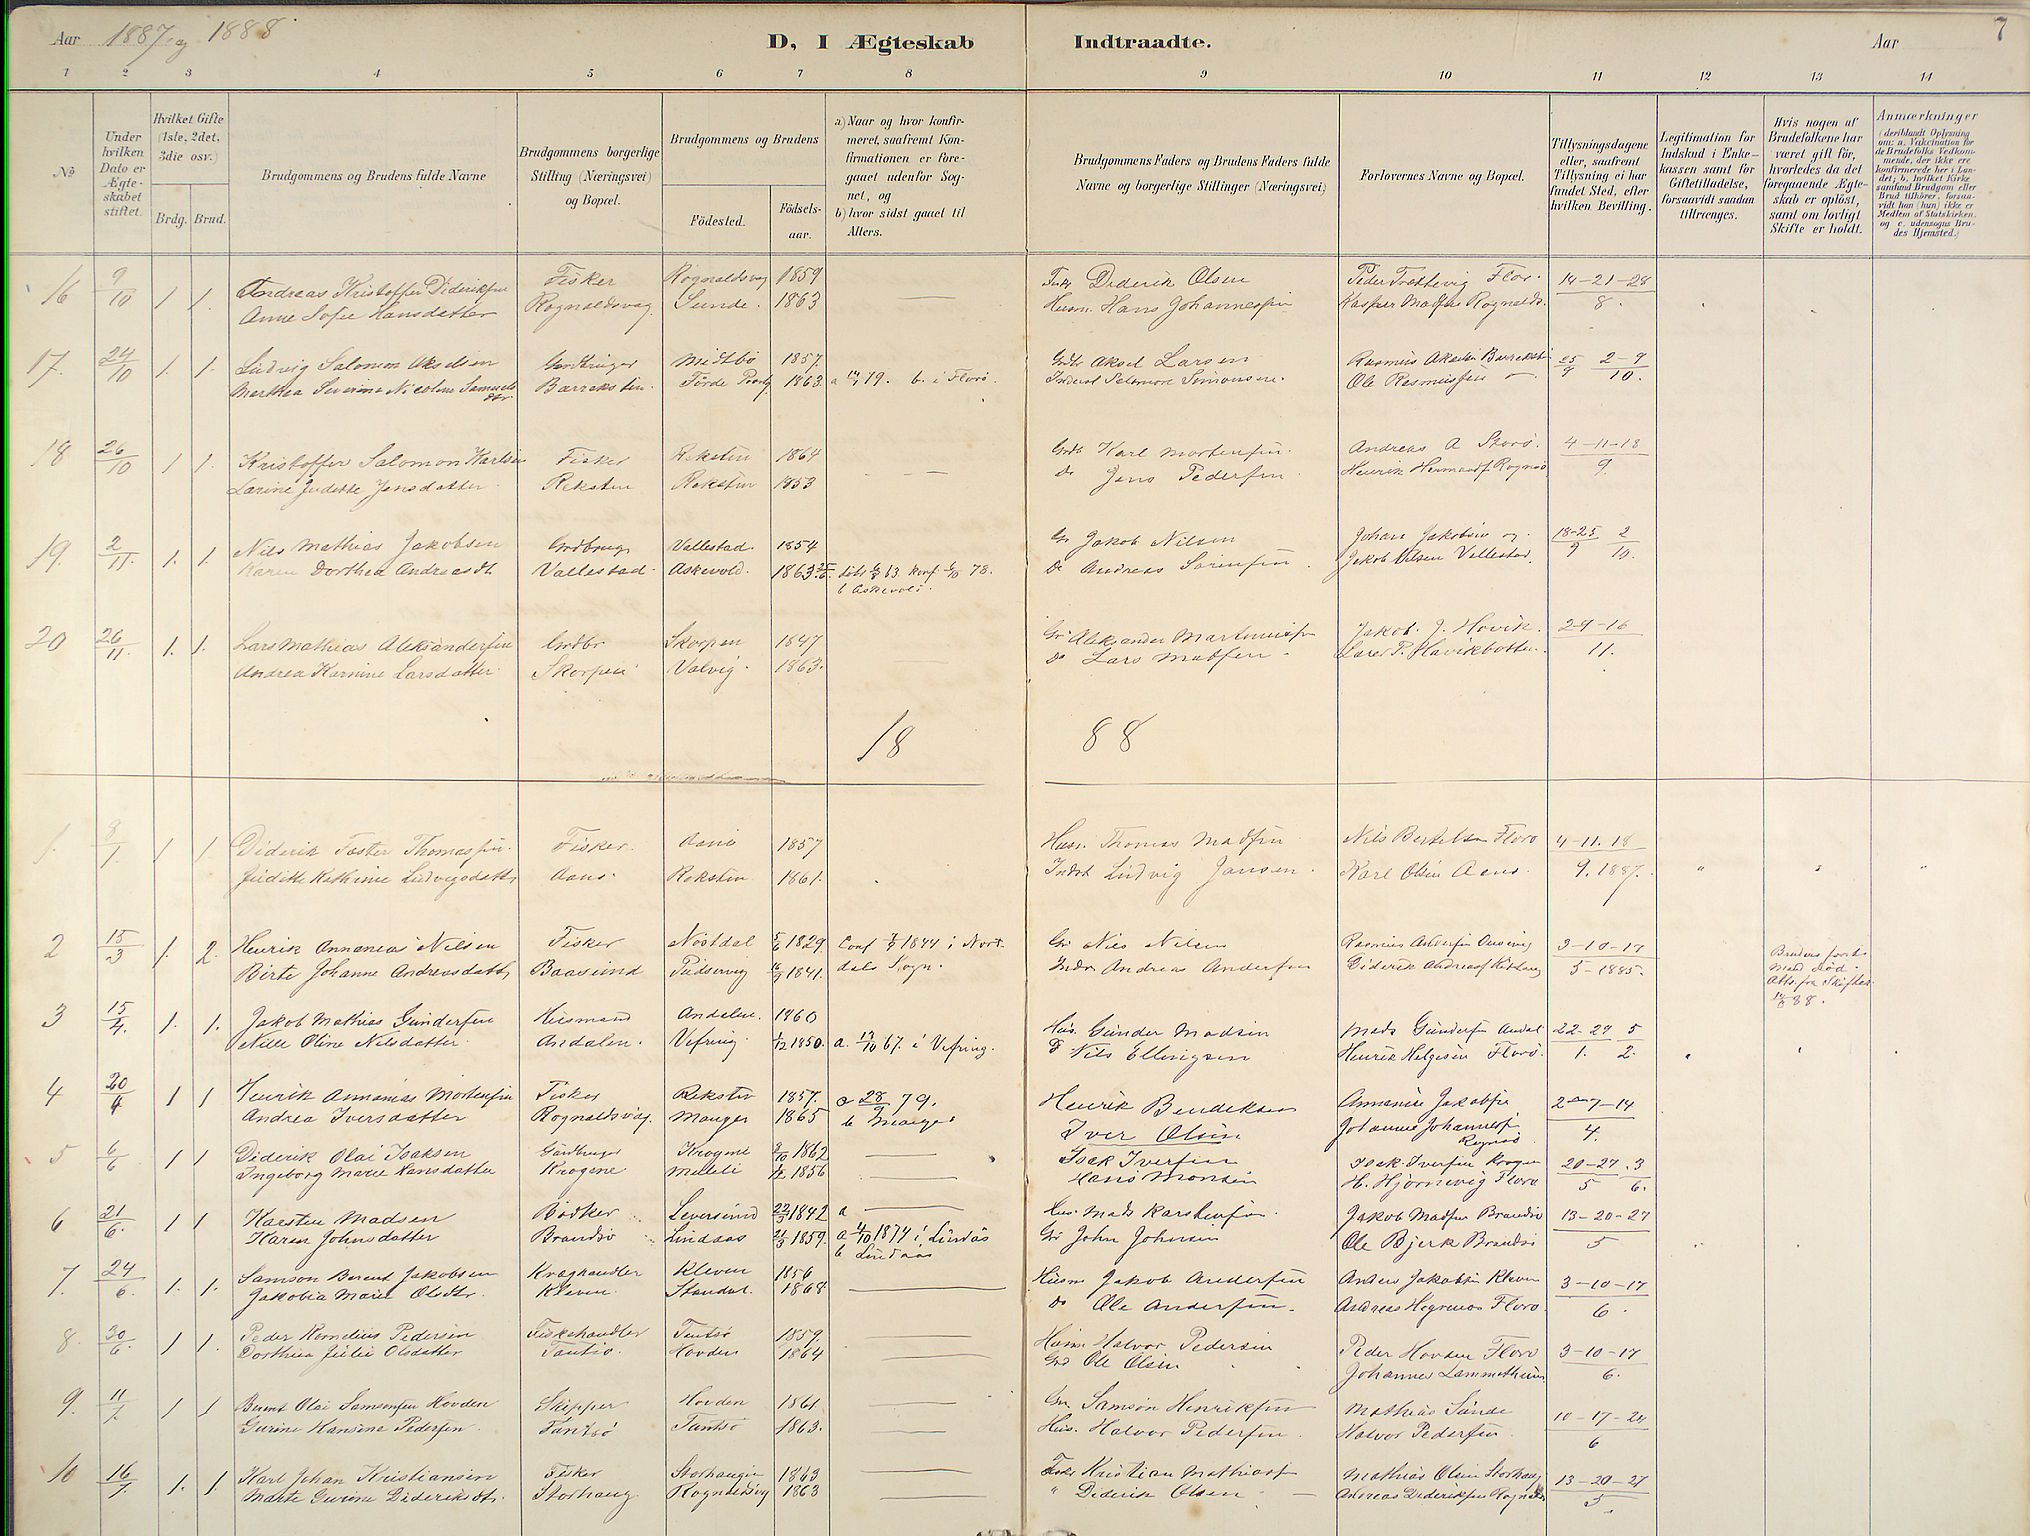 Aar 1887 og 1888
D, I Ægteskab Indtraadte.
Aar
7
1 2 3 4 5 6 7 8 9 10 11 12 13 14
No
Under hvilken Dato er Ægteskabet stiftet.
Hvilket Gifte (1ste, 2det, 3die osv.)
Brdg. Brud.
Brudgommens og Brudens fulde Navne
Brudgommens borgerlige Stilling (Næringsvei) og Bopæl.
Brudgommens og Brudens
Fødested.
Fødsels-aar.
a) Naar og hvor konfirmeret, saafremt Konfirmationen er foregaaet udenfor Sognet, og
b) hvor sidst gaaet til Alters.
Brudgommens Faders og Brudens Faders fulde Navne og borgerlige Stillinger (Næringsvei)
Forlovernes Navne og Bopæl.
Tillysningsdagene eller, saafremt Tillysning ei har fundet Sted, efter hvilken Bevilling.
Legitimation for Indskud i Enkekassen samt for Giftetilladelse, forsaavidt saadan tiltrænges.
Hvis nogen af Brudefolkene har været gift før, hvorledes da det foregaaende Ægteskab er opløst, samt om lovligt Skifte er holdt.
Anmærkninger (deriblandt Oplysning om: a. Vakcination for de Brudefolks Vedkommende, der ikke ere konfirmerede her i Landet; b. hvilket Kirkesamfund Brudgom eller Brud tilhører, forsaavidt han (hun) ikke er Medlem af Statskirken, og c. udensogns Brudes Hjemsted.)
16 9/10 1 1. Andreas Kristoffer Dideriksen Fisker Rognaldsvag 1859 Fisk Diderik Olsen Peder Trættevig Florø. 14-21-28
Anne Sofie Hansdatter Rognaldsvag. Sunde. 1863 Husm. Hans Johannessen Kasper Madsen Rognalds. 8.
17. 24/10 1. 1. Ludvig Salomon Akselsen Gardbruger Midtbø 1857. Grdbr Aksel Larsen Rasmus Akselsen Barrekst 25/9 2-9/10.
Marthea Severine Nicoline Samuelsdtr Barreksten. Førde 1863. a 79. b. i Florø. Inderst Salomon Simonsen. Ole Rasmussen
18 26/10 1 1. Kristoffer Salomon Karlsen Fisker Reksten 1864 Grdb Karl Mortensen. Andreas A Storø. 4-11-18
Larine Judithe Jensdatter Reksten Reksten 1853 Do Jens Pedersen Henrik Hermansf Rognø 9.
19. 2/11. 1. 1. Nils Mathias Jakobsen Grdbrug Vallestad. 1854 Gr Jakob Nilsen Johan Jakobsen og 18-25/9 2/10.
Karen Dorthea Andreasdt. Vallestad. Askevold. 1863 døbt 63. konf 78. Do Andreas Sørensen. Jakob Nilsen Vallestad.
b Askevold.
20 26/11. 1. 1. Lars Mathias Aleksandersen Grdbr Skorpen 1847 Gr Aleksander Martinussen Jakob. J. Hovik. 2-9-16
Andrea Karnine Larsdatter Skorpen Valvig. 1863. Do Lars Madsen. P. Havikbotten. 11.
18 88
1. 8/1. 1 1 Diderik Foster Thomassen. Fisker. Aanø 1857 Husm. Thomas Madsen Nils Bertelsen Florø 4-11.18
Judithe Kathrine Ludvigsdatt. Aanø. Reksten 1861. Indst Ludvig Jansen. Karl Olsen Aanø. 9.1887.
2 15/3 1. 2. Henrik Annanias Nilsen Fisker Nostdal 5/6 1829 Conf 1844 i Nord- Gr Nils Nilsen Rasmus Andersen 3-10-17
Birte Johanne Andreasdatt. Baasund 1841. dals Sogn. Inds Andreas Andersen Diderik Andreasf 5-1885. Brudens første Mand død. Atts. fra Skifter. 88.
3 15/4. 1. 1. Jakob Mathias Gundersen Husmand Andalen. 1860 Hus. Gunder Madsen Mads Gundersen Andal 22-29 5
Nille Oline Nilsdatter. Andalen. Vefring. 1/12 1850. a. 13/10 67. i Vefring. Nils Ellingsen Henrik Helgesen Florø. 1. 2.
4 20/4 1 1 Henrik Annanias Mortensen Fisker Reksten 1857. a 28/9 79. Henrik Bendiksen Annanias Jakobsen 2-7-14
Andrea Iversdatter Rognaldsvag. Manger 1865 b Manger Iver Olsen Johannes Johannesf Rognø 4.
5 6/6 1 1 Diderik Olai Isaksen Gardbruger Krogene 1862 Isak Iversen Isak Iversen Krogen 20-27. 3
Ingeborg Marie Hansdatter Krogene Melteli 1856 Hans Monsen H. Hjørnevig Florø 5 6.
6 21/6. 1 1 Karsten Madsen Bødker Leversund 22/3 1842 a Hus. Mads Karstensen. Jakob Madsen Brandsø 13-20-27
Karen Johnsdatter Brandsø Lindaas 1859. a 4/10 1874 i Lindås Gr John Johnsen Ole Bjerk Brandsø 5
b Lindaas
7. 24/6. 1. 1. Samson Berent Jakobsen Kræghandler Kleven 1856 Husm Jakob Andersen Anders Jakobsen Kleven 3-10-17
Jakobia Marie Olsdtr. Kleven. Standal. 1868 Do Ole Andersen. Andreas Hegrenes Florø. 6.
8. 30/6. 1 1 Peder Kornelius Pedersen Fiskehandler Tantsø 1859. Husm Halvor Pedersen Peder Hovden Florø 3-10-17
Dorthea Julie Olsdatter Tantsø. Hovden 1864 Grd Ole Olsen Johannes Lammethun 6.
9. 11/7. 1 1 Berent Olai Samsonsen Hovden Skipper Hovden 1861 Grd Samson Henriksen Mathias Sunde 10-17-24
Gurine Hansine Pedersen. Tantsø Tantsø 1863. Hus. Halvor Pedersen. Halvor Pedersen 6
10 16/7 1. 1. Karl Johan Kristiansen Fisker Storhaugen 1863 Fisk Kristian Mathiasf Mathias Olsen Storhaug 13-20-27
Marte Gurine Dideriksdt. Storhaug. Rognaldsvg 1863 " Diderik Olsen Andreas Dideriksen Rognalds 5